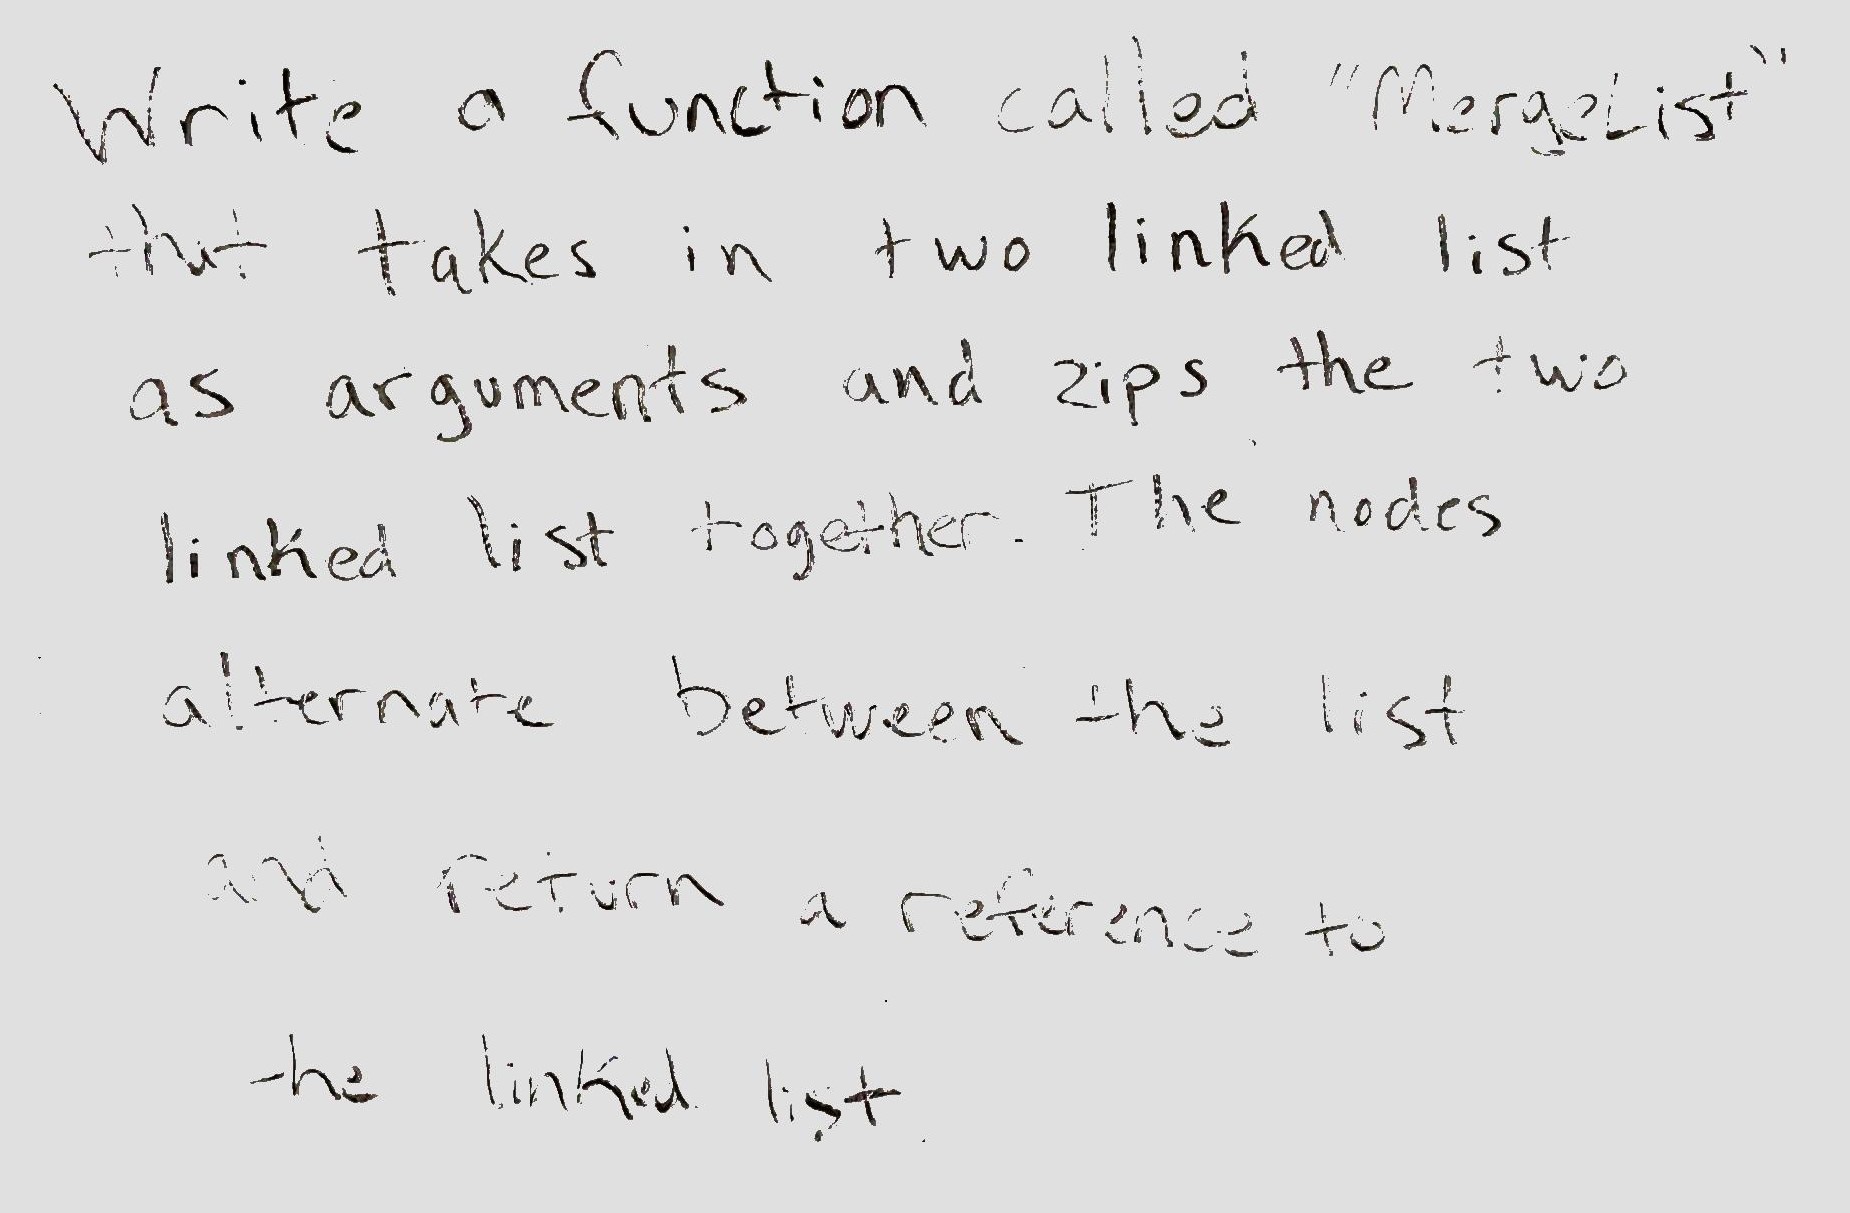 Write a function called "MergeList"
that takes in two linked list
as arguments and zips the two
linked list together. The nodes
alternate between the list
and return a reference to
the linked list